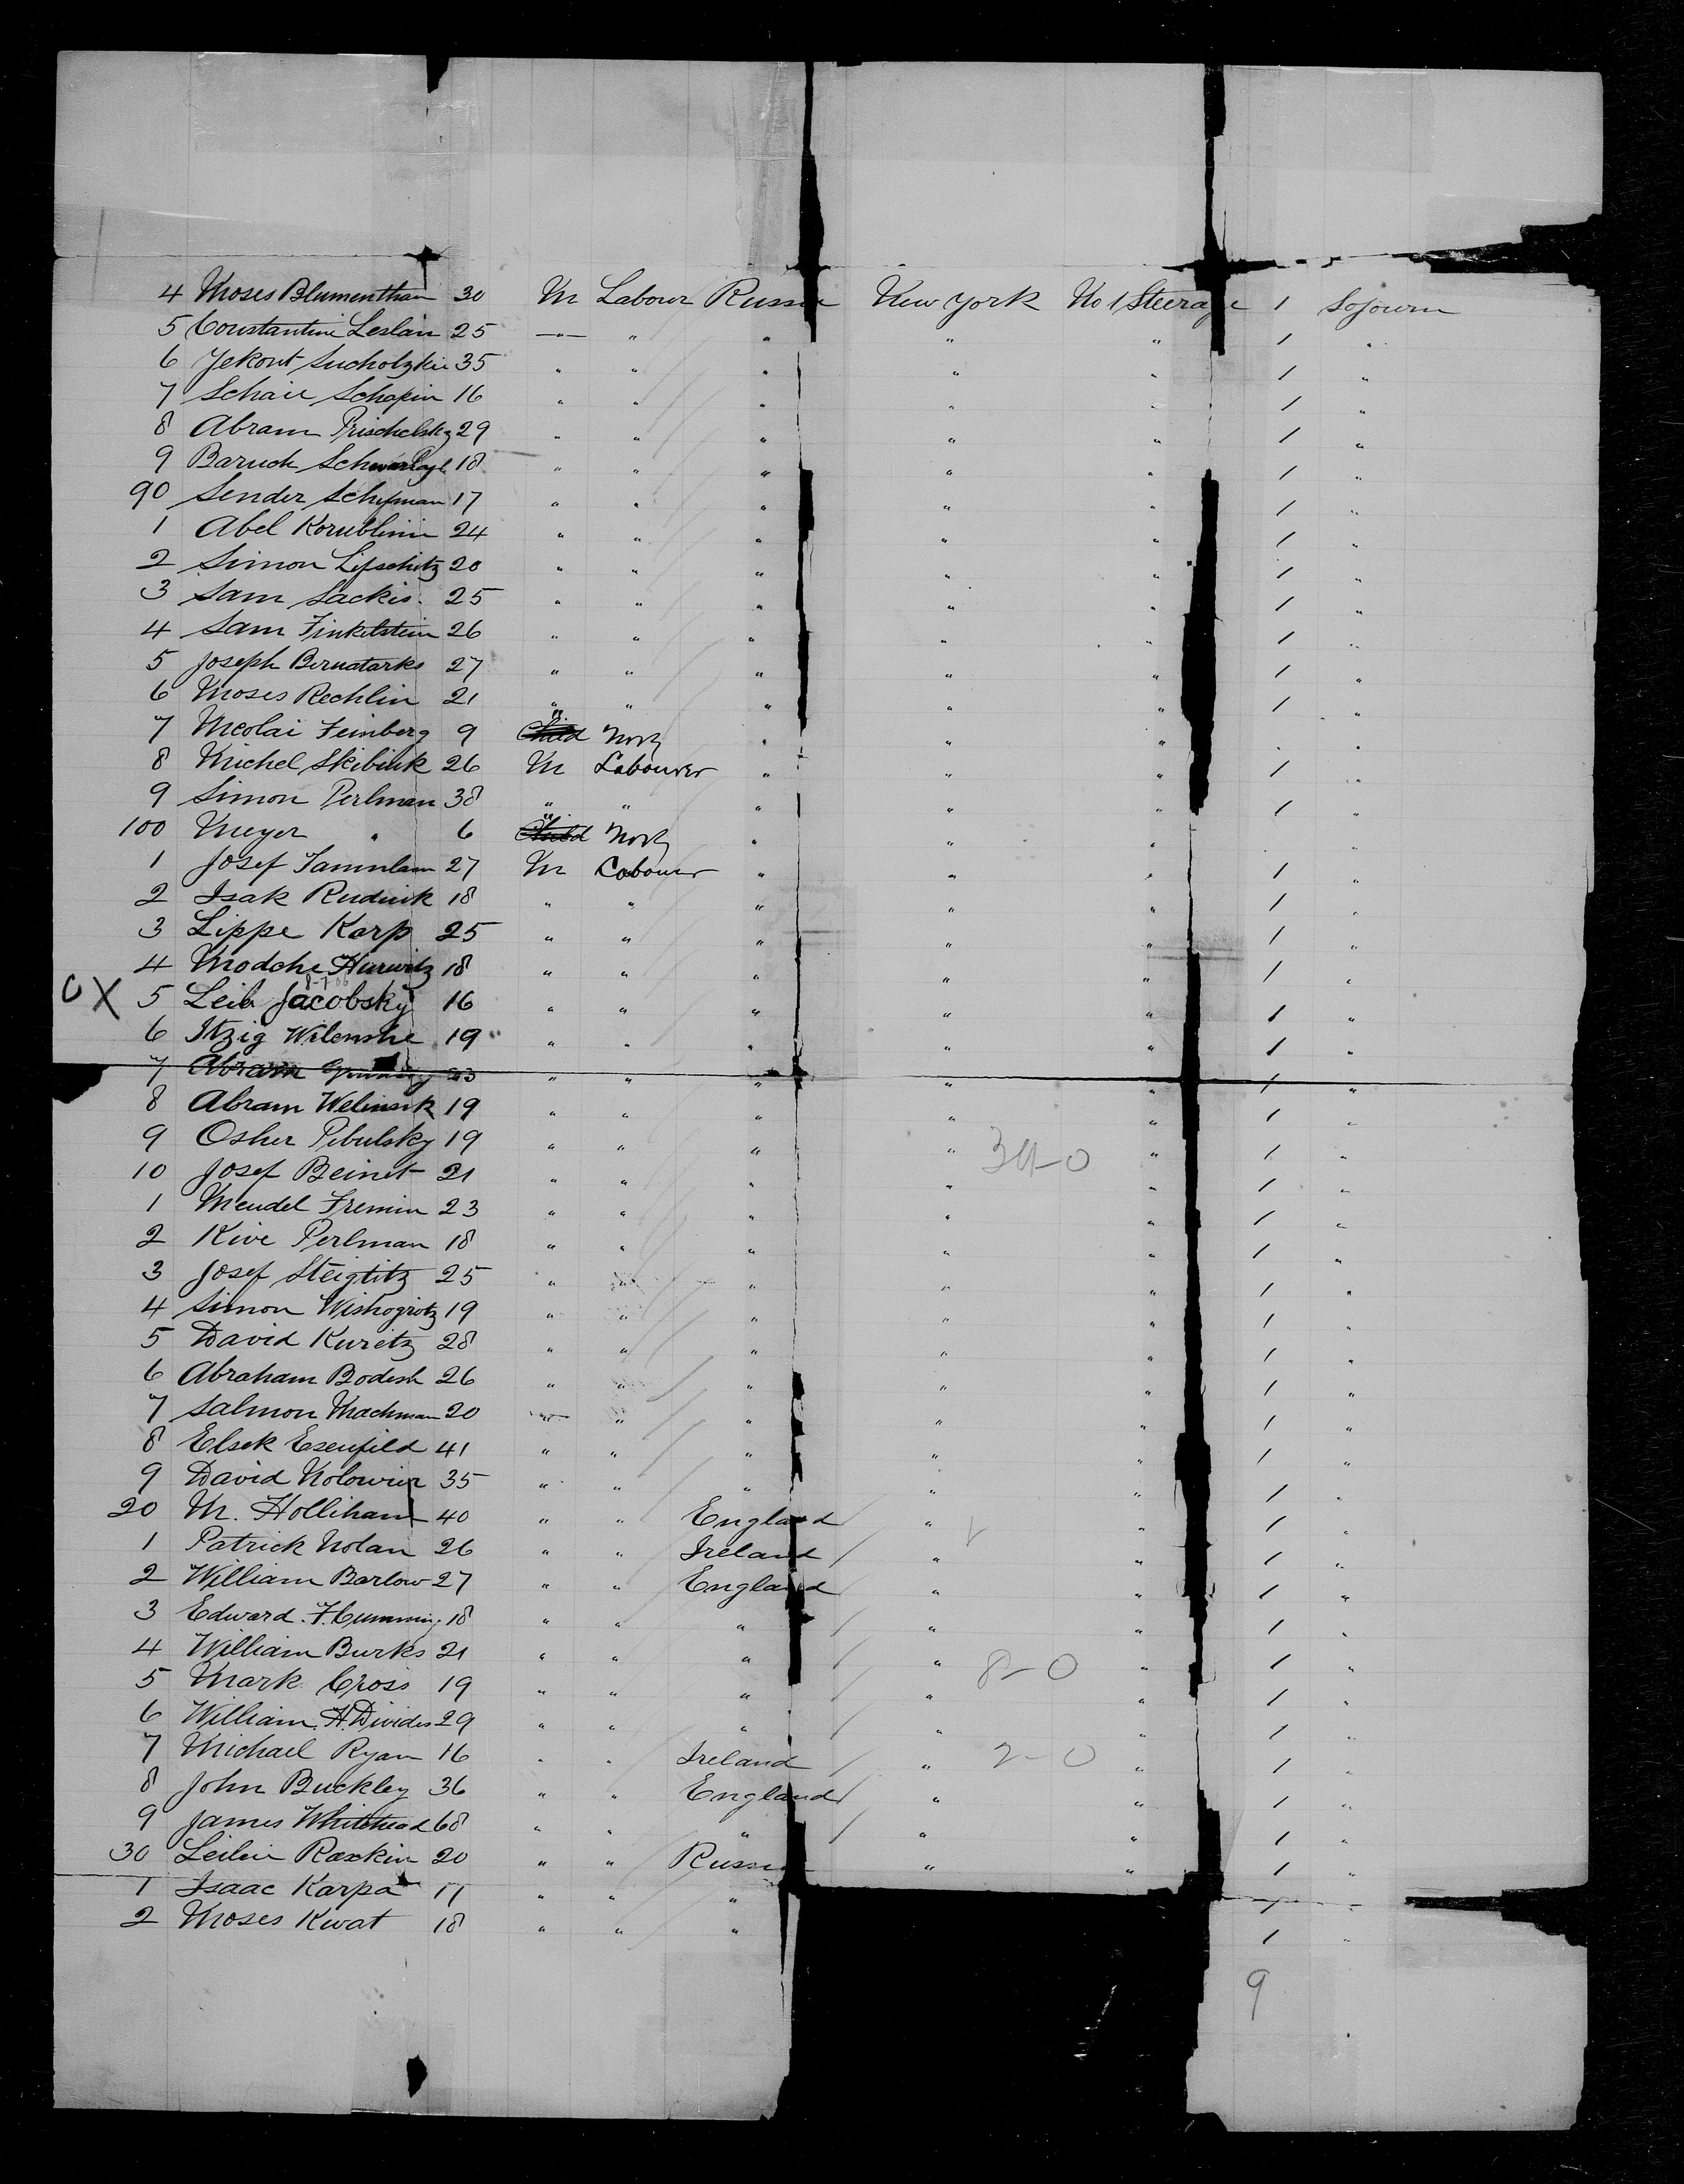 4 Moses Blumenthan 30 M Labour Russia New York No 1 Steerage 1 Sojourn
5 Constantine Leslain 25 — " " " " 1 "
6 Jekout Sucholzkie 35 " " " " " 1 "
7 Schaie Schapin 16 " " " " " 1 "
8 Abram Prischelsky 29 " " " " " 1 "
9 Baruch 18 " " " " " 1 "
90 Sender Schipman 17 " " " " " 1 "
1 Abel Kornblum 24 " " " " " 1 "
2 Simon Lipschitz 20 " " " " " 1 "
3 Sam Sackis 25 " " " " " 1 "
4 Sam Finkelstein 26 " " " " " 1 "
5 Joseph Bernatarks 27 " " " " " 1 "
6 Moses Rechlin 21 " " " " " 1 "
7 Nicolai Feinberg 9 Child " " " " " "
8 Michel Skibink 26 M Labourer " " " 1 "
9 Simon Perlman 38 " " " " " 1 "
100 Meyer " 6 Child " " " " "
1 Josef Tammlam 27 M Labourer " " " 1 "
2 Isak Rudnik 18 " " " " " 1 "
3 Lippe Karp 25 " " " " " 1 "
4 Modche Hurwitz 18 " " " " " 1 "
8-7-06
X 5 Leib Jacobsky 16 " " " " " 1 "
6 Itzig Wilenshe 19 " " " " " 1 "
7 Abram " " " " " 1 "
8 Abram Welinsik 19 " " " " " 1 "
9 Osher Pibulsky 19 " " " " " 1 "
10 Josef Beinet 21 " " " " " 1 "
1 Mendel Fremin 23 " " " " " 1 "
2 Kive Perlman 18 " " " " " 1 "
3 Josef Steiglitz 25 " " " " " 1 "
4 Simon Wishogrotz 19 " " " " " 1 "
5 David Kuretz 28 " " " " " 1 "
6 Abraham Bodesh 26 " " " " " 1 "
7 Salmon Machman 20 " " " " " 1 "
8 Elsek Esenfild 41 " " " " " 1 "
9 David Nolowier 35 " " " " " 1 "
20 M. Hollihan 40 " " England " " 1 "
1 Patrick Nolan 26 " " Ireland " " 1 "
2 William Barlow 27 " " England " " 1 "
3 Edward. F. Cumming 18 " " " " " 1 "
4 William Burks 21 " " " " 8-0 " 1 "
5 Mark Cross 19 " " " " " 1 "
6 William. H. Divides 29 " " " " " 1 "
7 Michael Ryan 16 " " Ireland " 2-0 " 1 "
8 John Buckley 36 " " England " " 1 "
9 James Whitehead 68 " " " " " 1 "
30 Leibin Raxkin 20 " " Russia " " 1 "
1 Isaac Karpa 17 " " " 1 "
2 Moses Kwat 18 " " " 1 "
9